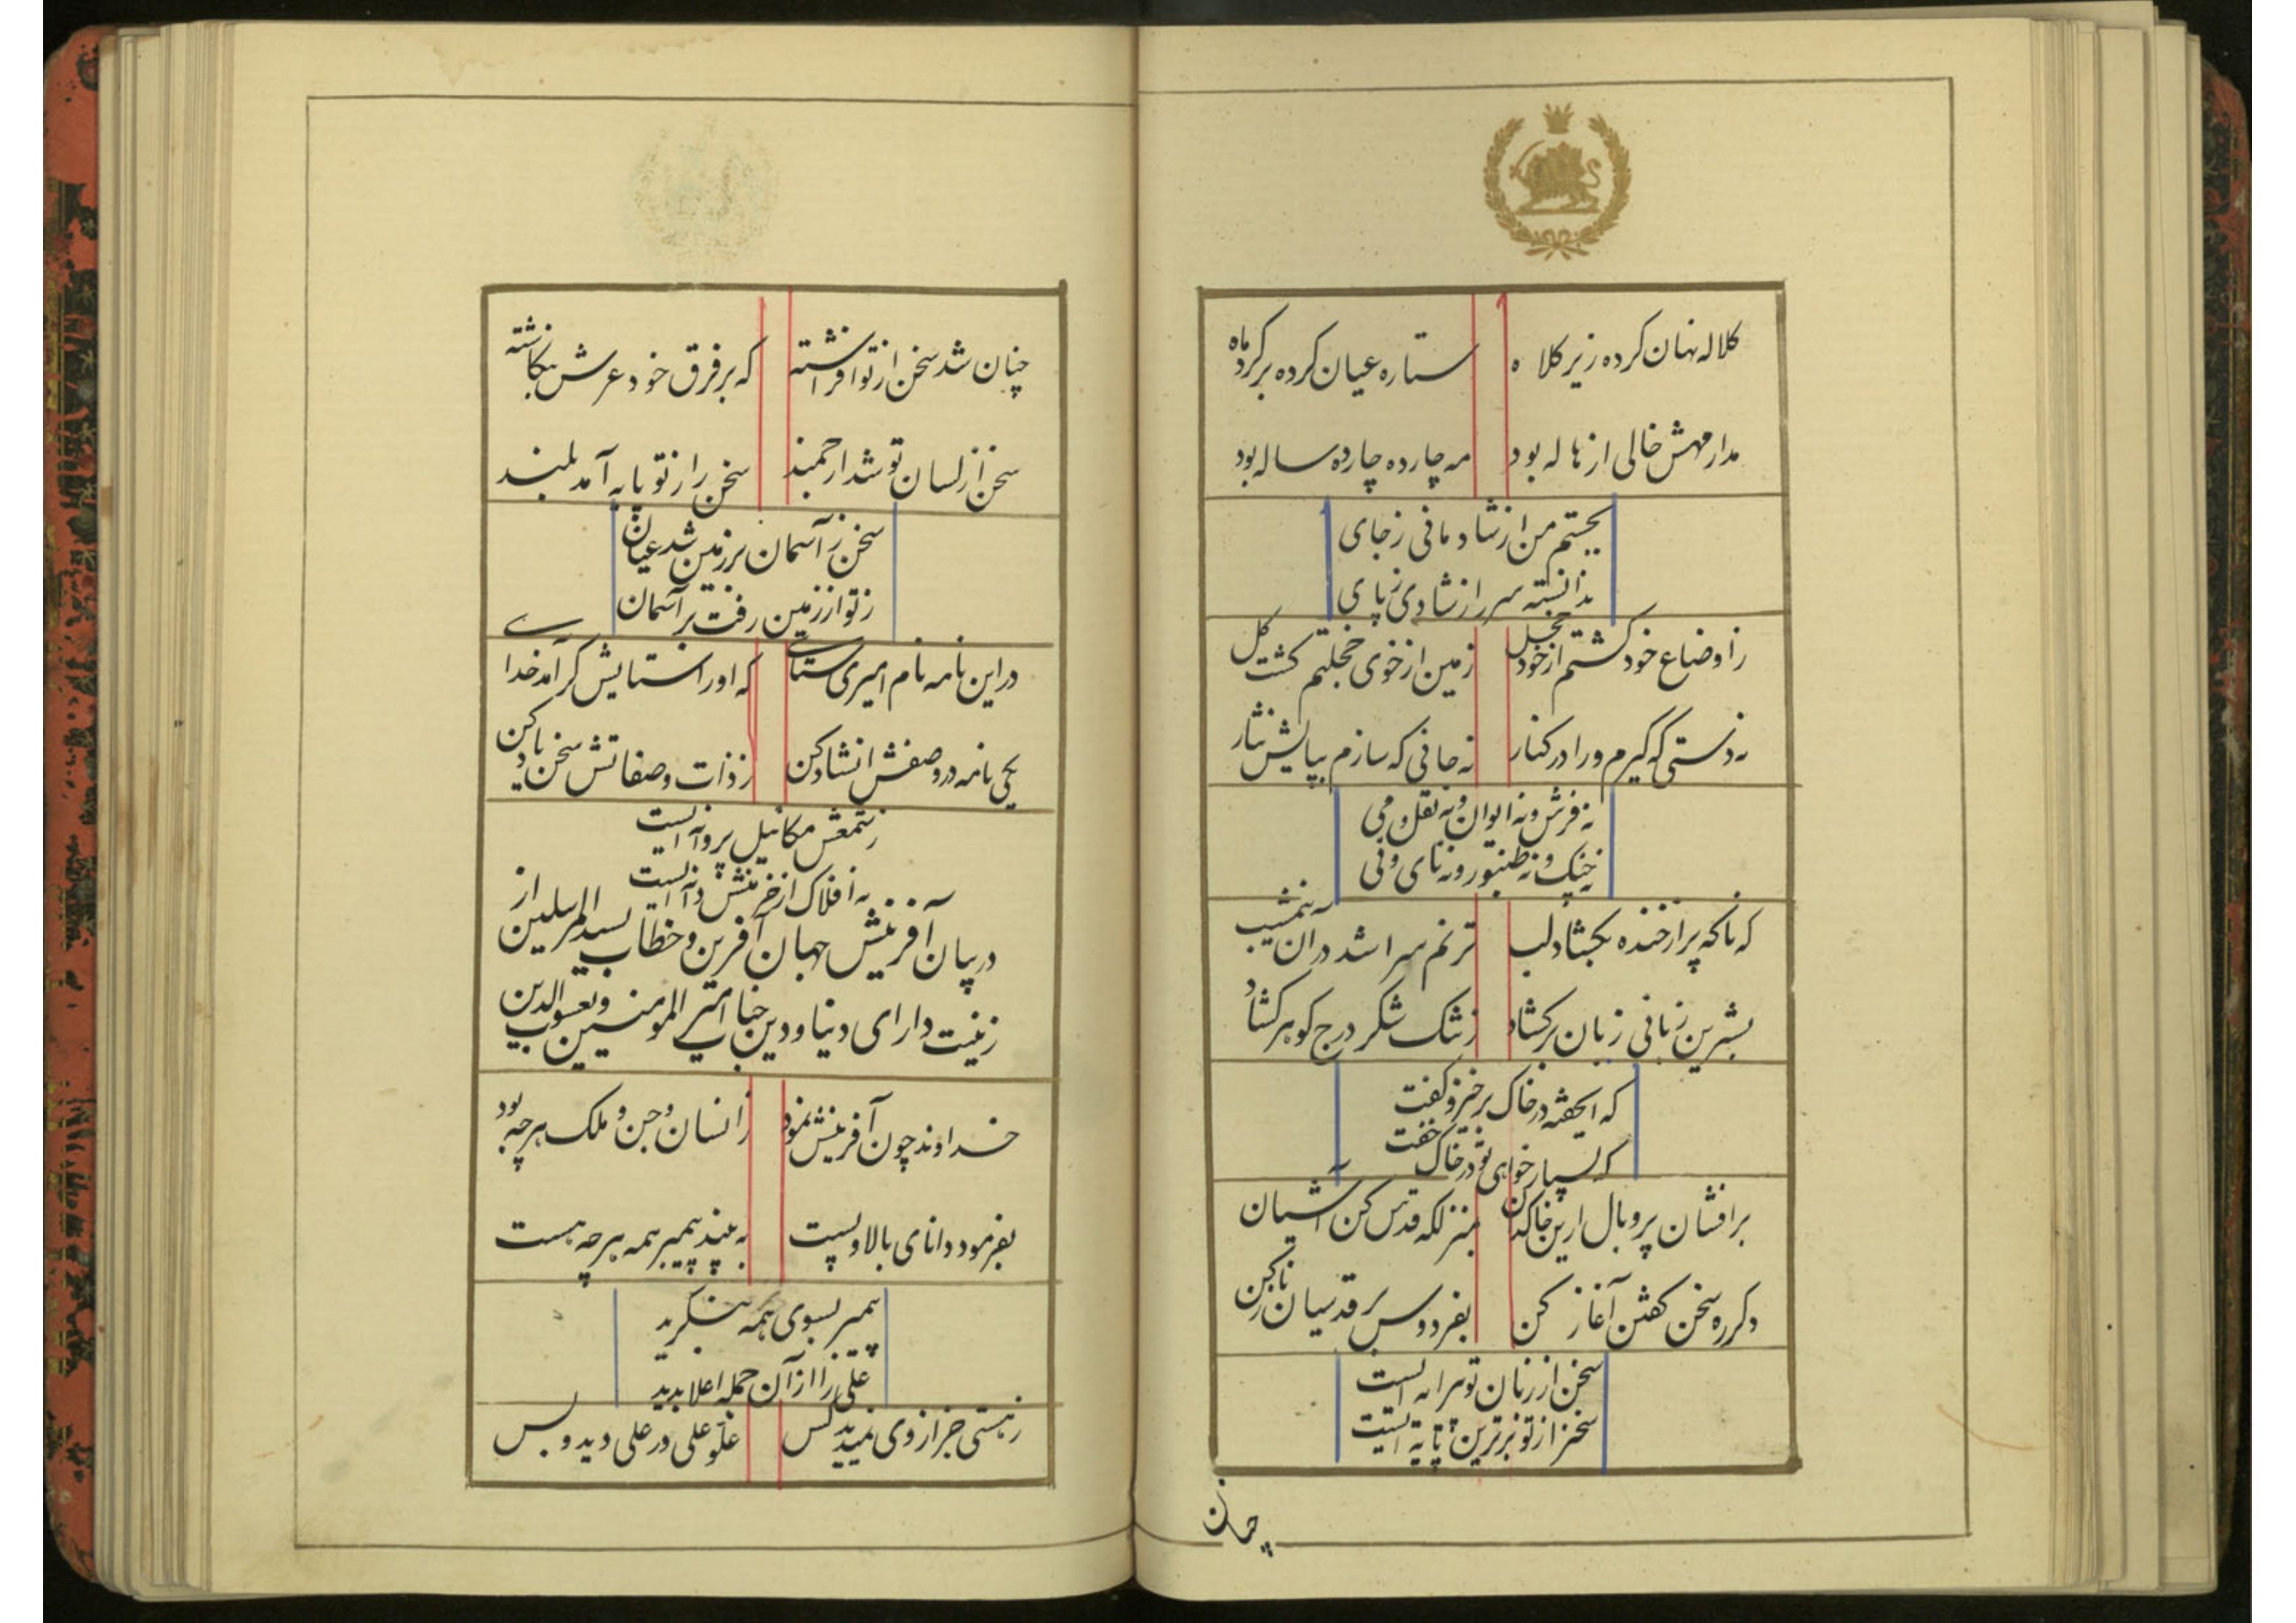 کلاله نهان کرده زیر کلاه ستاره عیان کرده بر گرد ماه
مدار مهش خالی از هاله بود مه چارده چارده ساله بود
بجستم من از شادمانی ز جای
ندانسته سر را ز شادی ز پای
ز اوضاع خود گشتم از خود خجل زمین از خوی خجلتم گشت گل
نه دستی که گیرم ورا در کنار نه جانی که سازم بپایش نثار
نه فرش و نه ایوان و نه نقل و می
نه چنک و نه طنبور و نه نای و نی
که ناکه پر از خنده بکشاد لب ترنم سرا شد در آن نیمشب
بشیرین زبانی زبان برکشاد ز تنک شکر درج کوهر کشاد
که ایخفته در خاک برخیز و کفت
که بسیار خواهی تو در خاک خفت
برافشان پر و بال ازین خاکدان بمنزلکه قدس کن آشیان
دکرره سخن کفتن آغاز کن بفردوس بر قدسیان ناز کن
سخن از زبان تو پیرایه ایست
سخن از تو برترین پایه ایست
چنان
چنان شد سخن از تو افراشته که بر فرق خود عرش بکاشته
سخن از لسان تو شد ارجمند سخن را ز تو پایه آمد بلند
سخن ز آسمان بر زمین شد عیان
ز تو از زمین رفت بر آسمان
در این نامه نام امیری ستای که او را ستایش کر آمد خدای
یکی نامه در وصفش انشاد کن ز ذات و صفاتش سخن یاد کن
ز شمعش مکائیل پروانه ایست
نه افلاک از خرمنش دانه ایست
در بیان آفرینش جهان آفرین و خطاب بسید المرسلین از
زینت دارای دنیا و دین جناب امیر المومنین و یعسوب الدین
خداوند چون آفرینش نمود ز انسان و جن و ملک هر چه بود
بفرمود دانای بالا و پست به بیند پیمبر همه هر چه هست
پیمبر بسوی همه بنکرید
علی را از آن جمله اعلا بدید
ز هستی جز از وی ندید کس علو علی در علی دید و بس